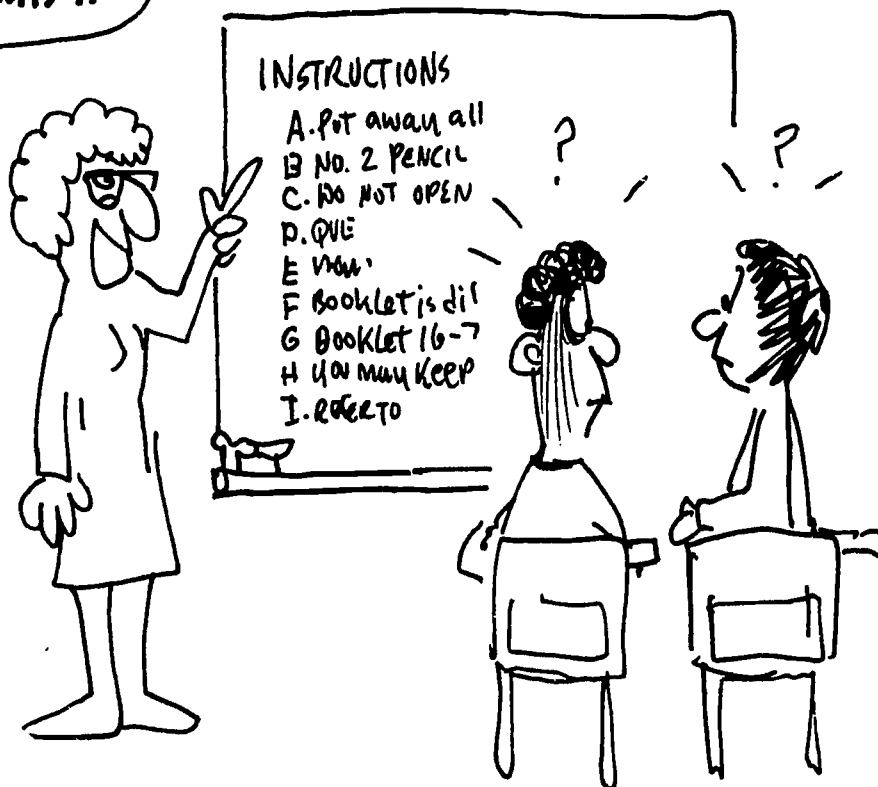 INSTRUCTIONS
A. Put away all
B NO. 2 PENCIL
C. DO NOT OPEN
D. QUE
E
F Booklet is di
G Booklet 16-7
H you may Keep
I. REFER TO
?
?